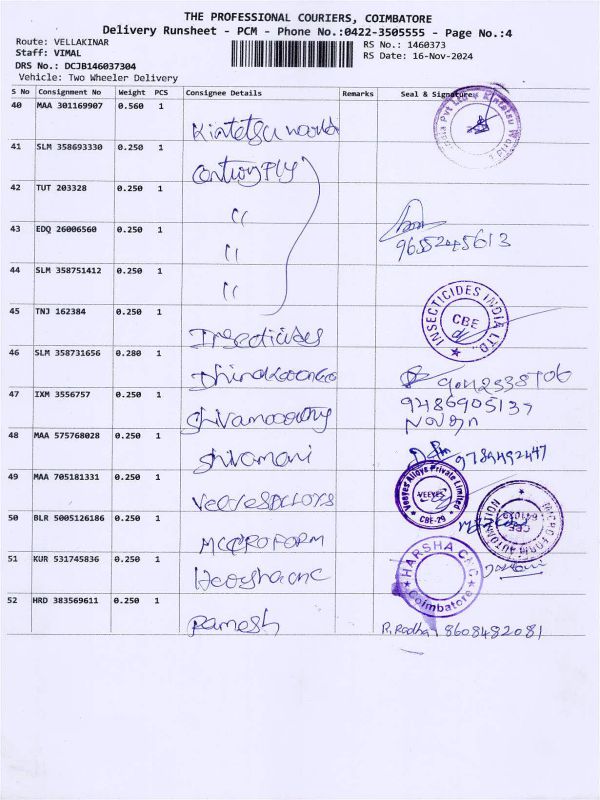 THE PROFESSIONAL COURIERS, COIMBATORE
Delivery Runsheet - PCM - Phone No.:0422-3505555 - Page No.:4
Route: VELLAKINAR
RS No.: 1460373
Staff: VIMAL
RS Date: 16-Nov-2024
DRS No.: DCJB146037304
Vehicle: Two Wheeler Delivery
S No Consignment No Weight PCS Consignee Details Remarks Seal & Signature
40 MAA 301169907 0.560 1
Kintetsu world
41 SLM 358693330 0.250 1
42 TUT 203328 0.250 1
"
43 EDQ 26006560 0.250 1
9655245613
"
44 SLM 358751412 0.250 1
"
45 TNJ 162384 0.250 1
Insecticides
INSECTICIDES INDIA LTD.
CBE
46 SLM 358731656 0.280 1
47 IXM 3556757 0.250 1
9486905137
48 MAA 575768028 0.250 1
Shivamani
9789492447
49 MAA 705181331 0.250 1
Veeyes Alloys Private Limited
VEEYES
CBE-29
50 BLR 5005126186 0.250 1
MICROFORM
MICRO FORM AUTOMATION
CBE
641029
51 KUR 531745836 0.250 1
Harsha cnc
HARSHA CNC
Coimbatore
52 HRD 383569611 0.250 1
Ramesh
R. Radha 8608482081